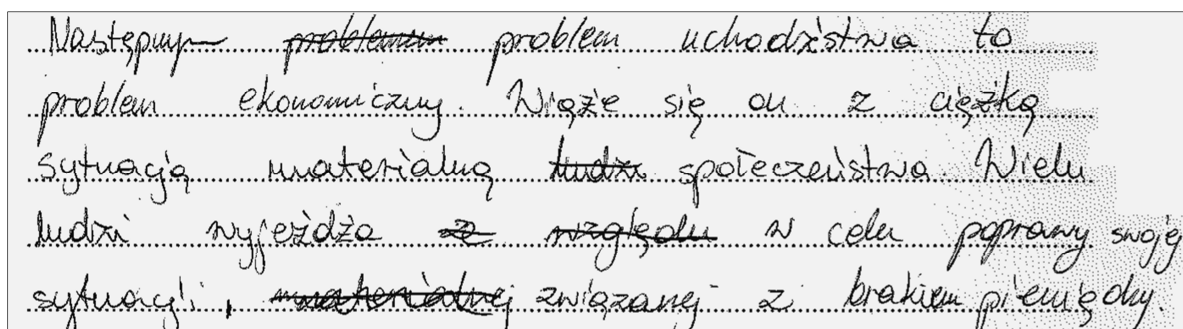 Następnym ~~problemem~~ problem uchodźstwa to
problem ekonomiczny. Wiąże się on z ciężką
sytuacją materialną ~~ludzi~~ społeczeństwa. Wielu
ludzi wyjeżdża ~~ze~~ ~~względu~~ w celu poprawy swojej
sytuacji, ~~materialnej~~ związanej z brakiem pieniędzy.